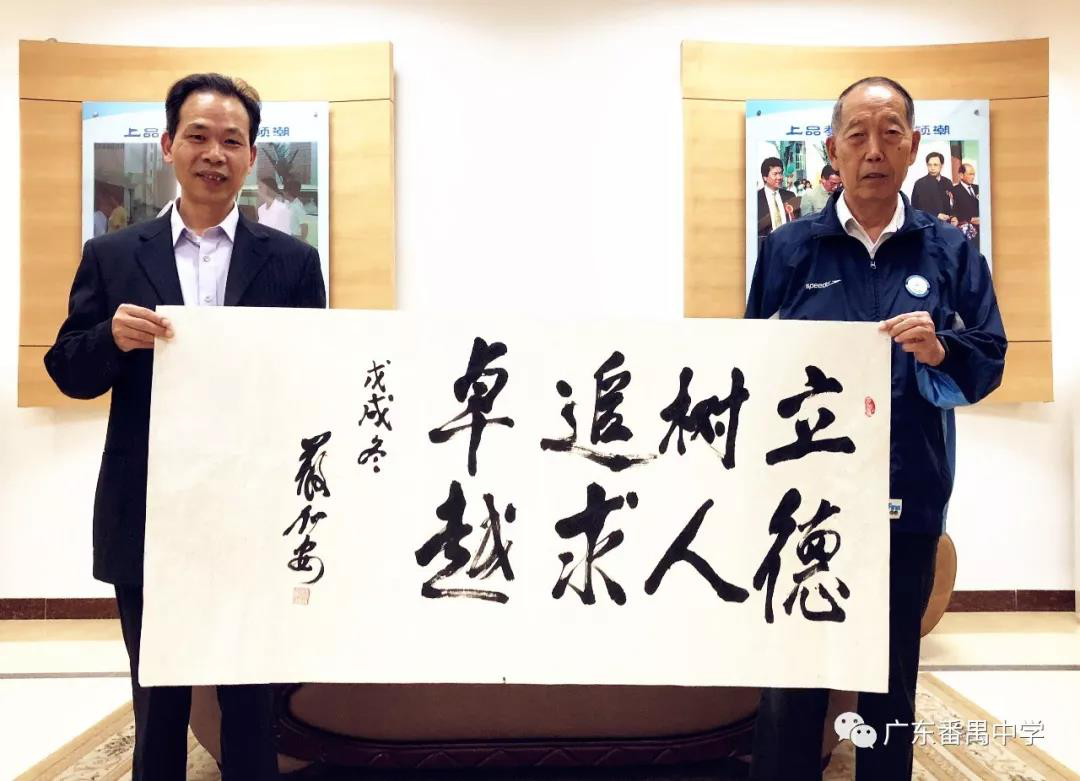 上品
潮
上品
潮
立德
树人
追求
卓越
戊戌冬
嚴加安
speedo
广东番禺中学